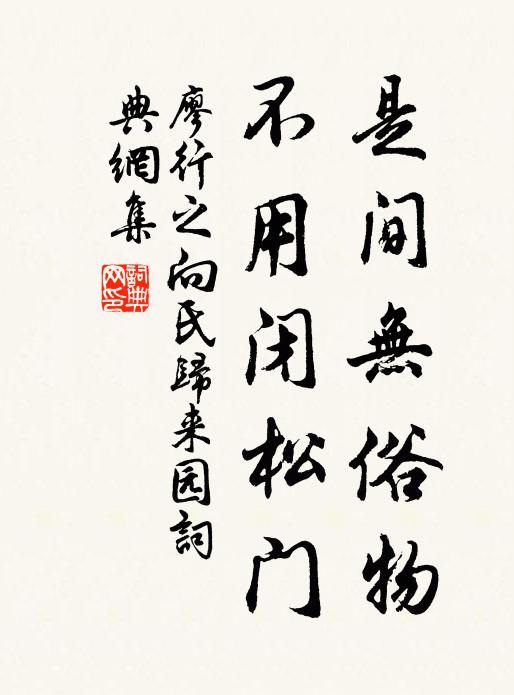 是间無俗物
不用闭松门
廖行之向氏歸来园詞
典網集
詞典
网印